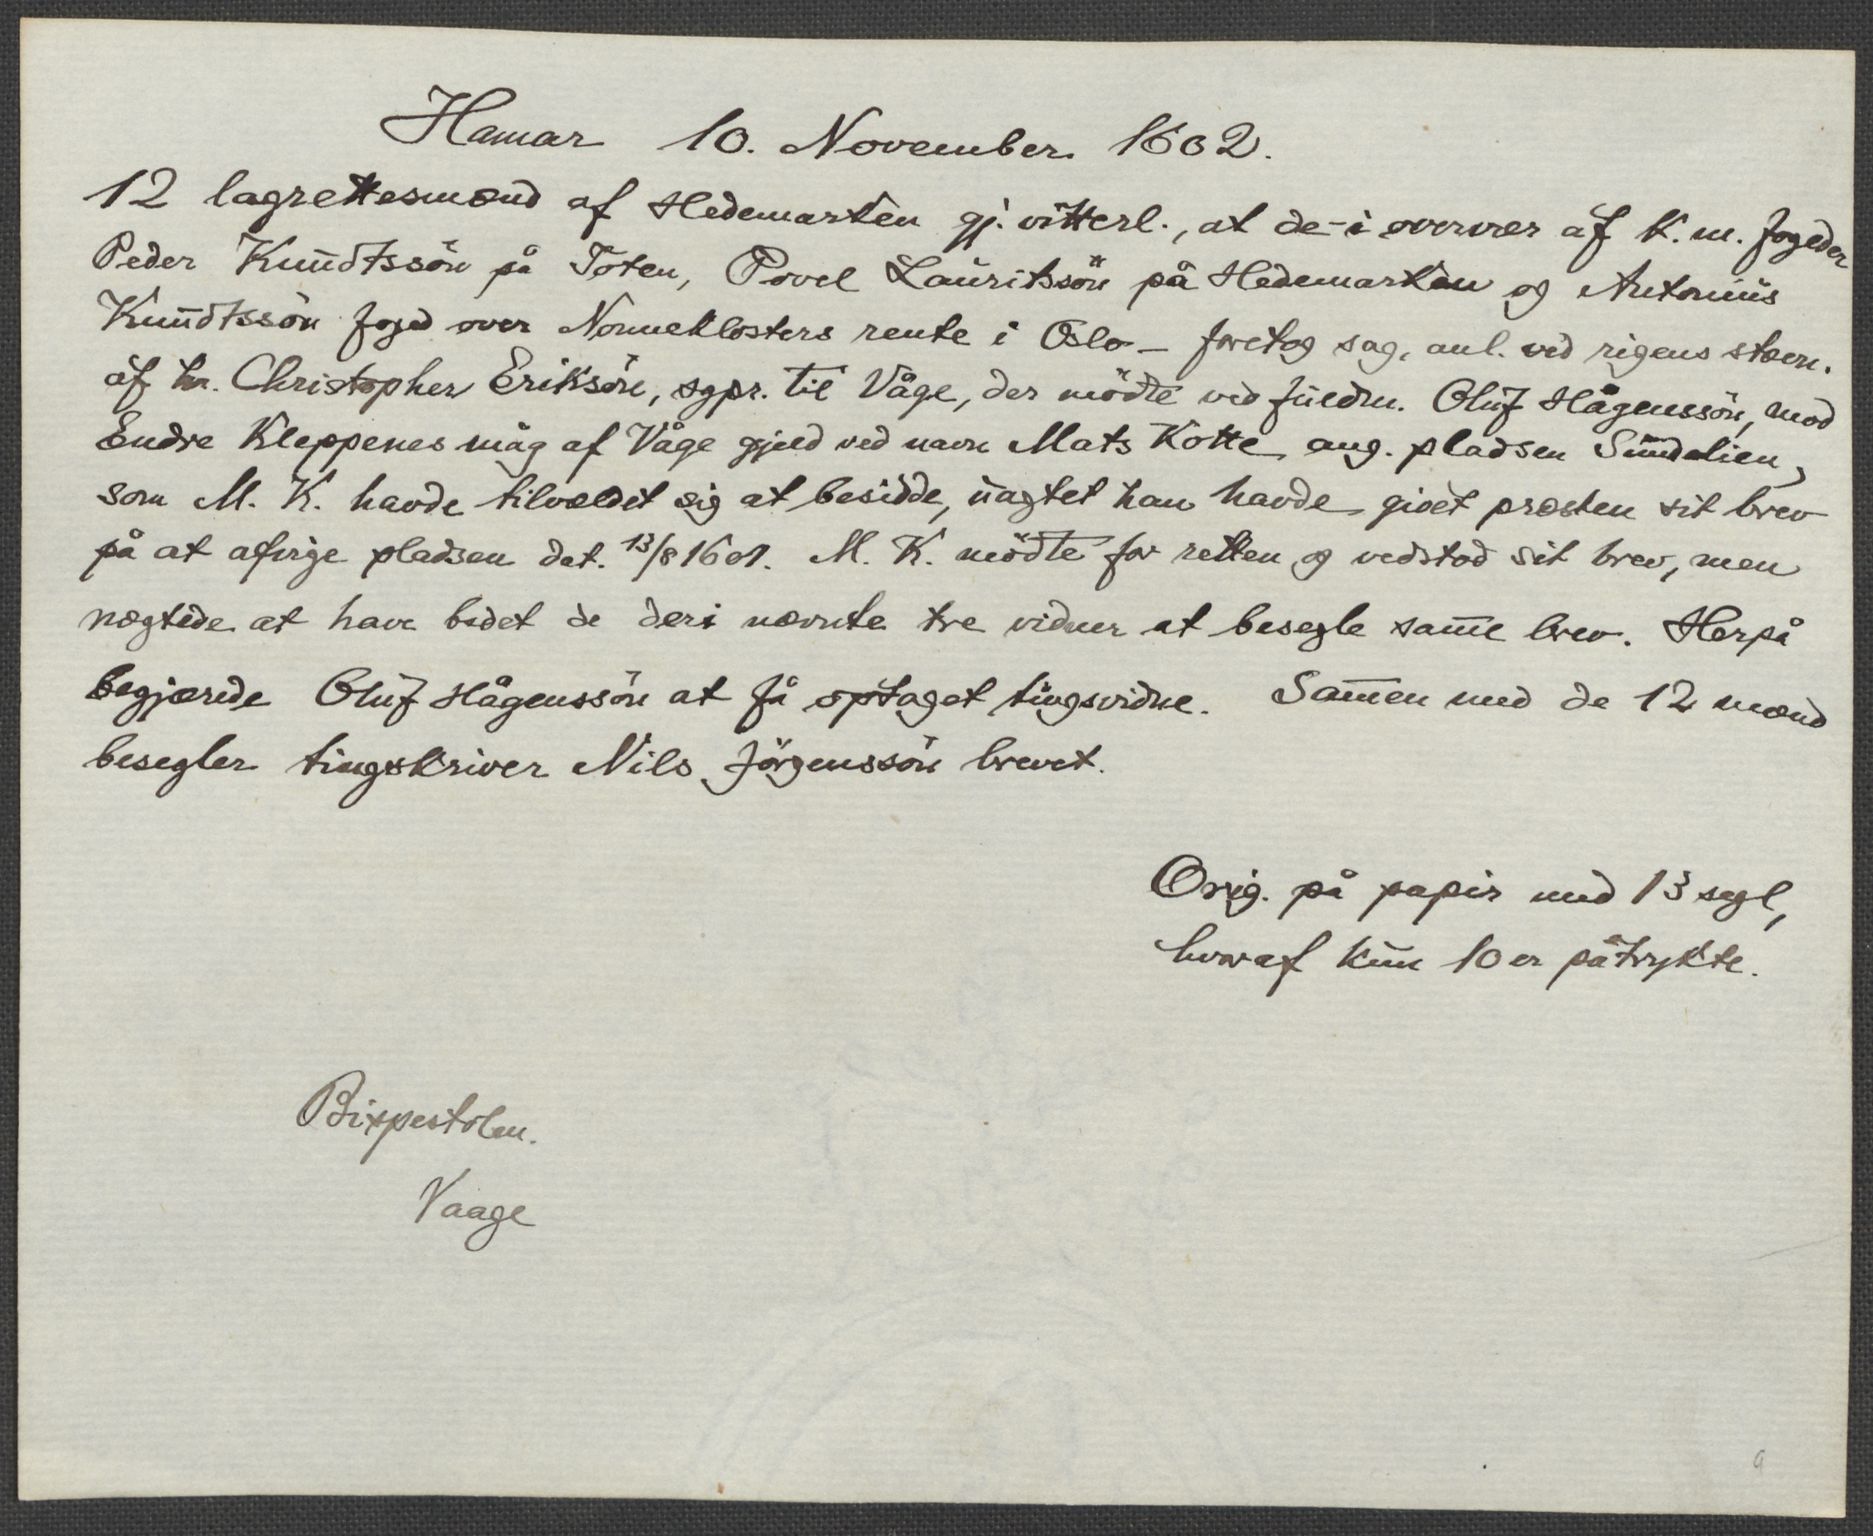 Hamar 10. November 1602.
12 lagrettesmænd af Hedemarken gj. vitterl., at de - i overvær af k. m. fogeder
Peder Knudtssön på Toten, Povel Lauritssön på Hedemarken og Antonius
Knudtssön foged over Nonneklosters rente i Oslo - foretog sag, anl. ved rigens stævn.
af hr. Christopher Eriksön, sgpr. til Våge, der mödte ved fuldm. Oluf Hågenssön, mod
Endre Kleppenes måg af Våge gjeld ved navn Mats Kotte ang. pladsen Sundelien,
som M. K. havde tilvældet sig at besidde, uagtet han havde givet præsten sit brev
på at afvige pladsen dat. 13/8 1601. M. K. mödte for retten og vedstod sit brev, men
nægtede at have bedet de deri nævnte tre vidner at besegle samme brev. Herpå
begjærede Oluf Hågenssön at få optaget tingsvidne. Sammen med de 12 mænd
besegler tingskriver Nils Jörgenssön brevet.
Orig. på papir med 13 segl,
hvoraf kun 10 er påtrykte.
Bispestolen.
Vaage
9